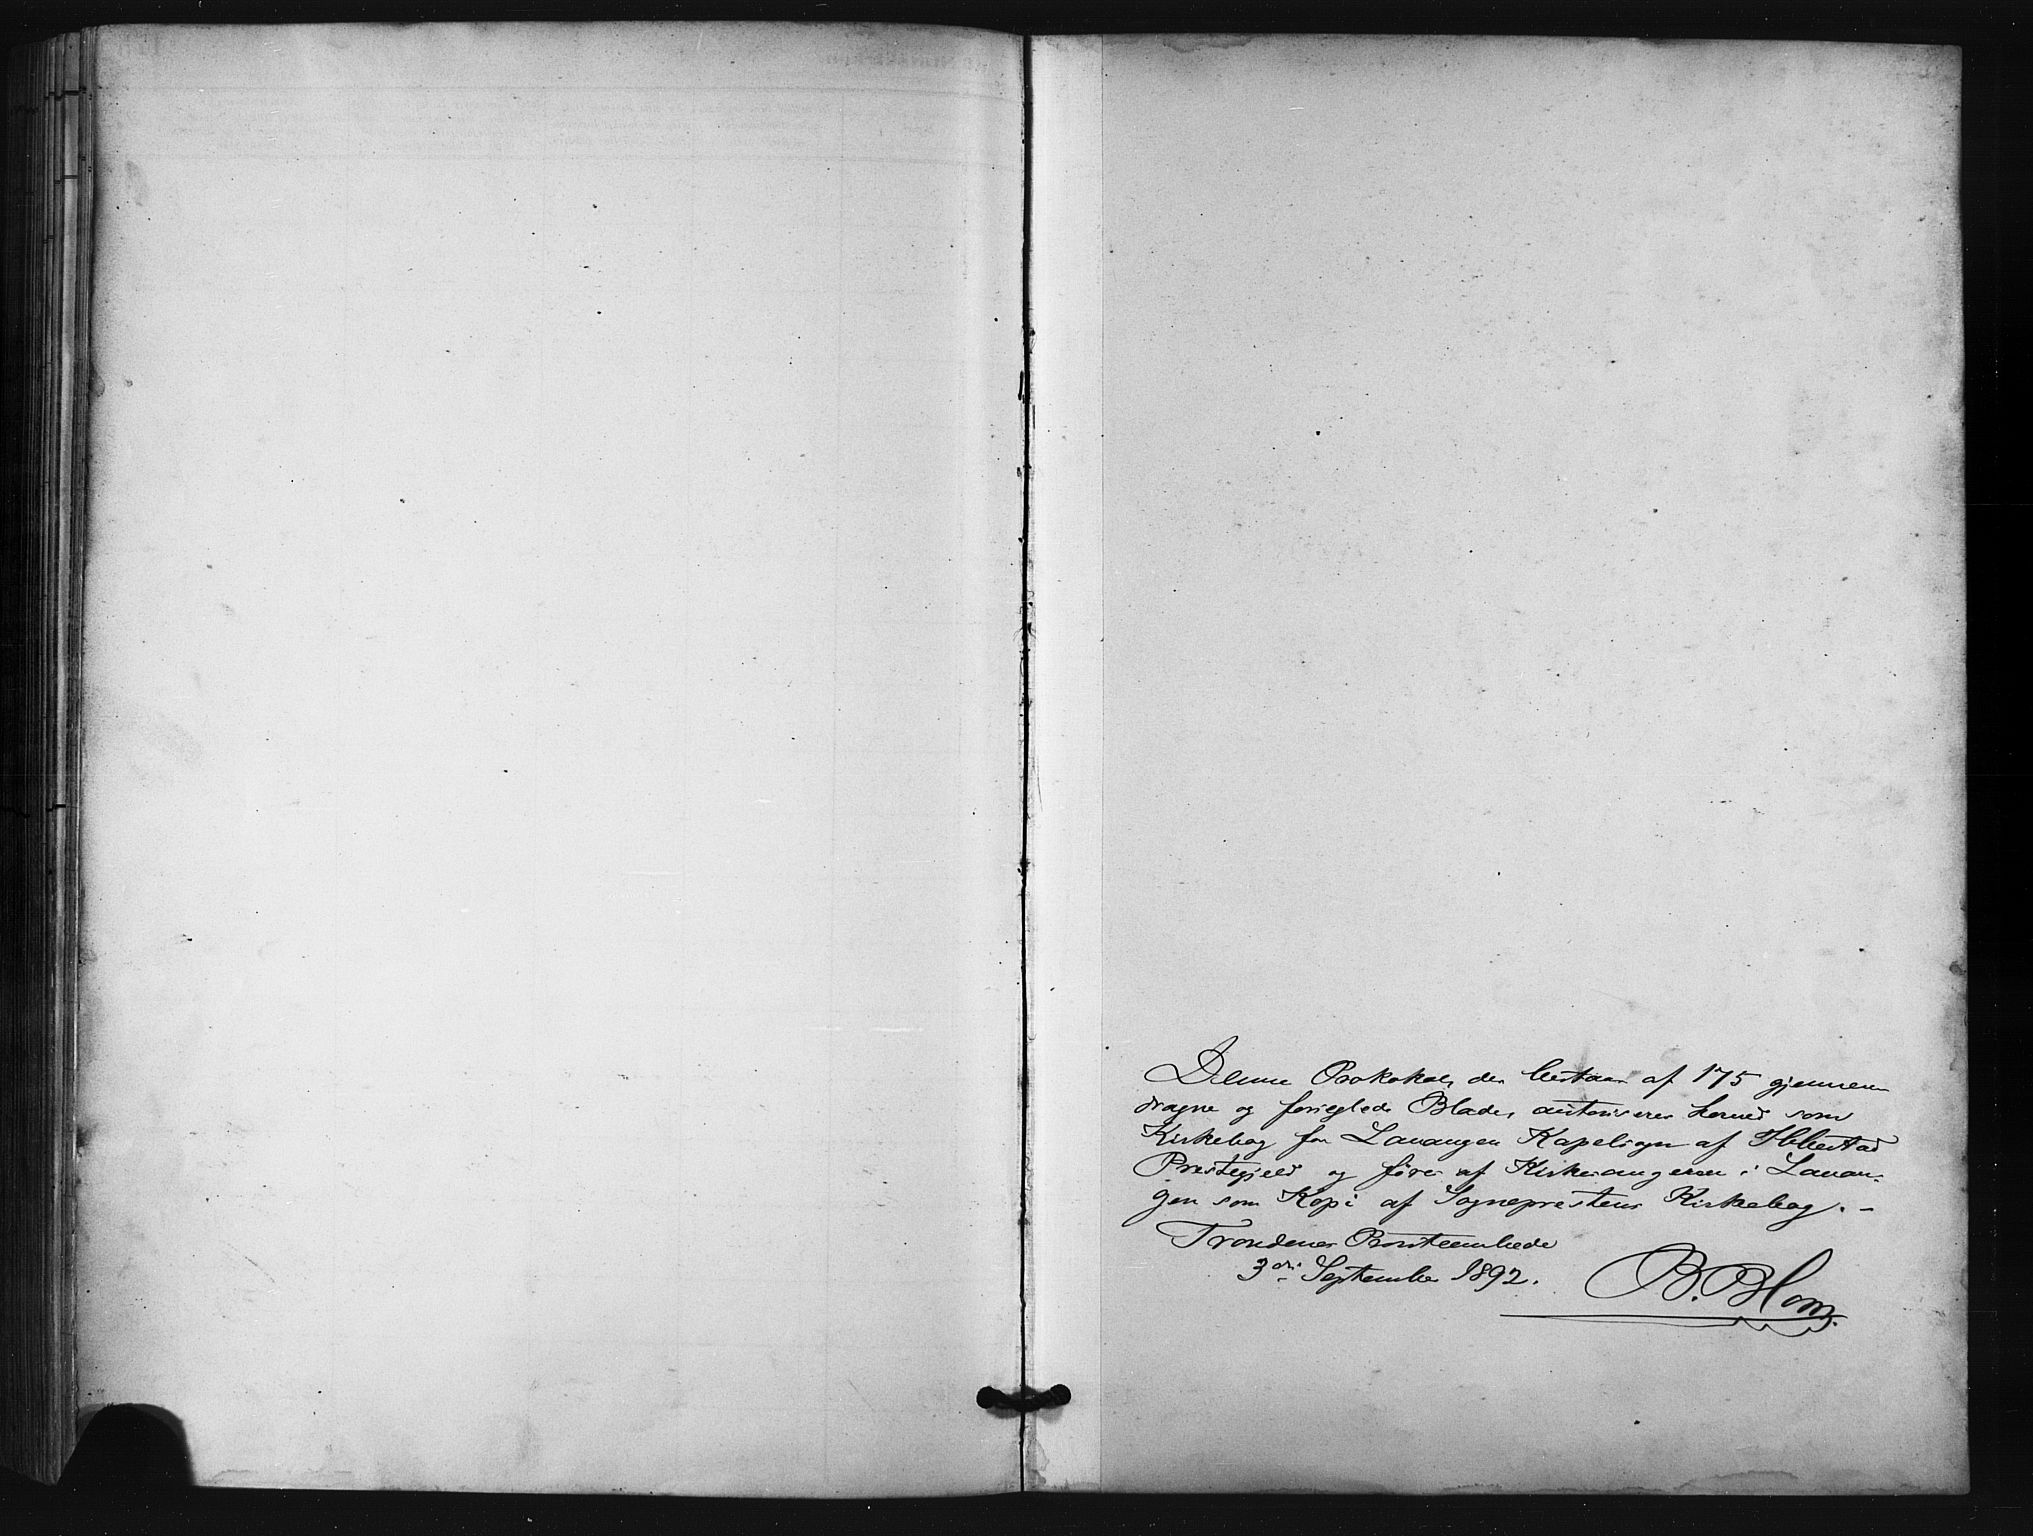 Denne Protokol, der bestaar af 175 gjennem
dragne og forseglede Blade, autoriseres herved som
Kirkebog for Lavangen Kapelsogn af Ibbestad
Præstegjeld og føres af Kirkesangeren i Lavan-
gen som Kopi af Sogneprestens Kirkebog. -
Trondenes Provsteembede
3die September 1892.
B. Blom.